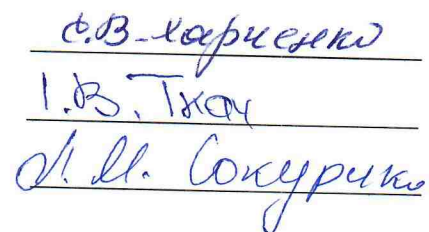 С.В. Харченко
І.В. Ткач
Л.М. Сокурчко